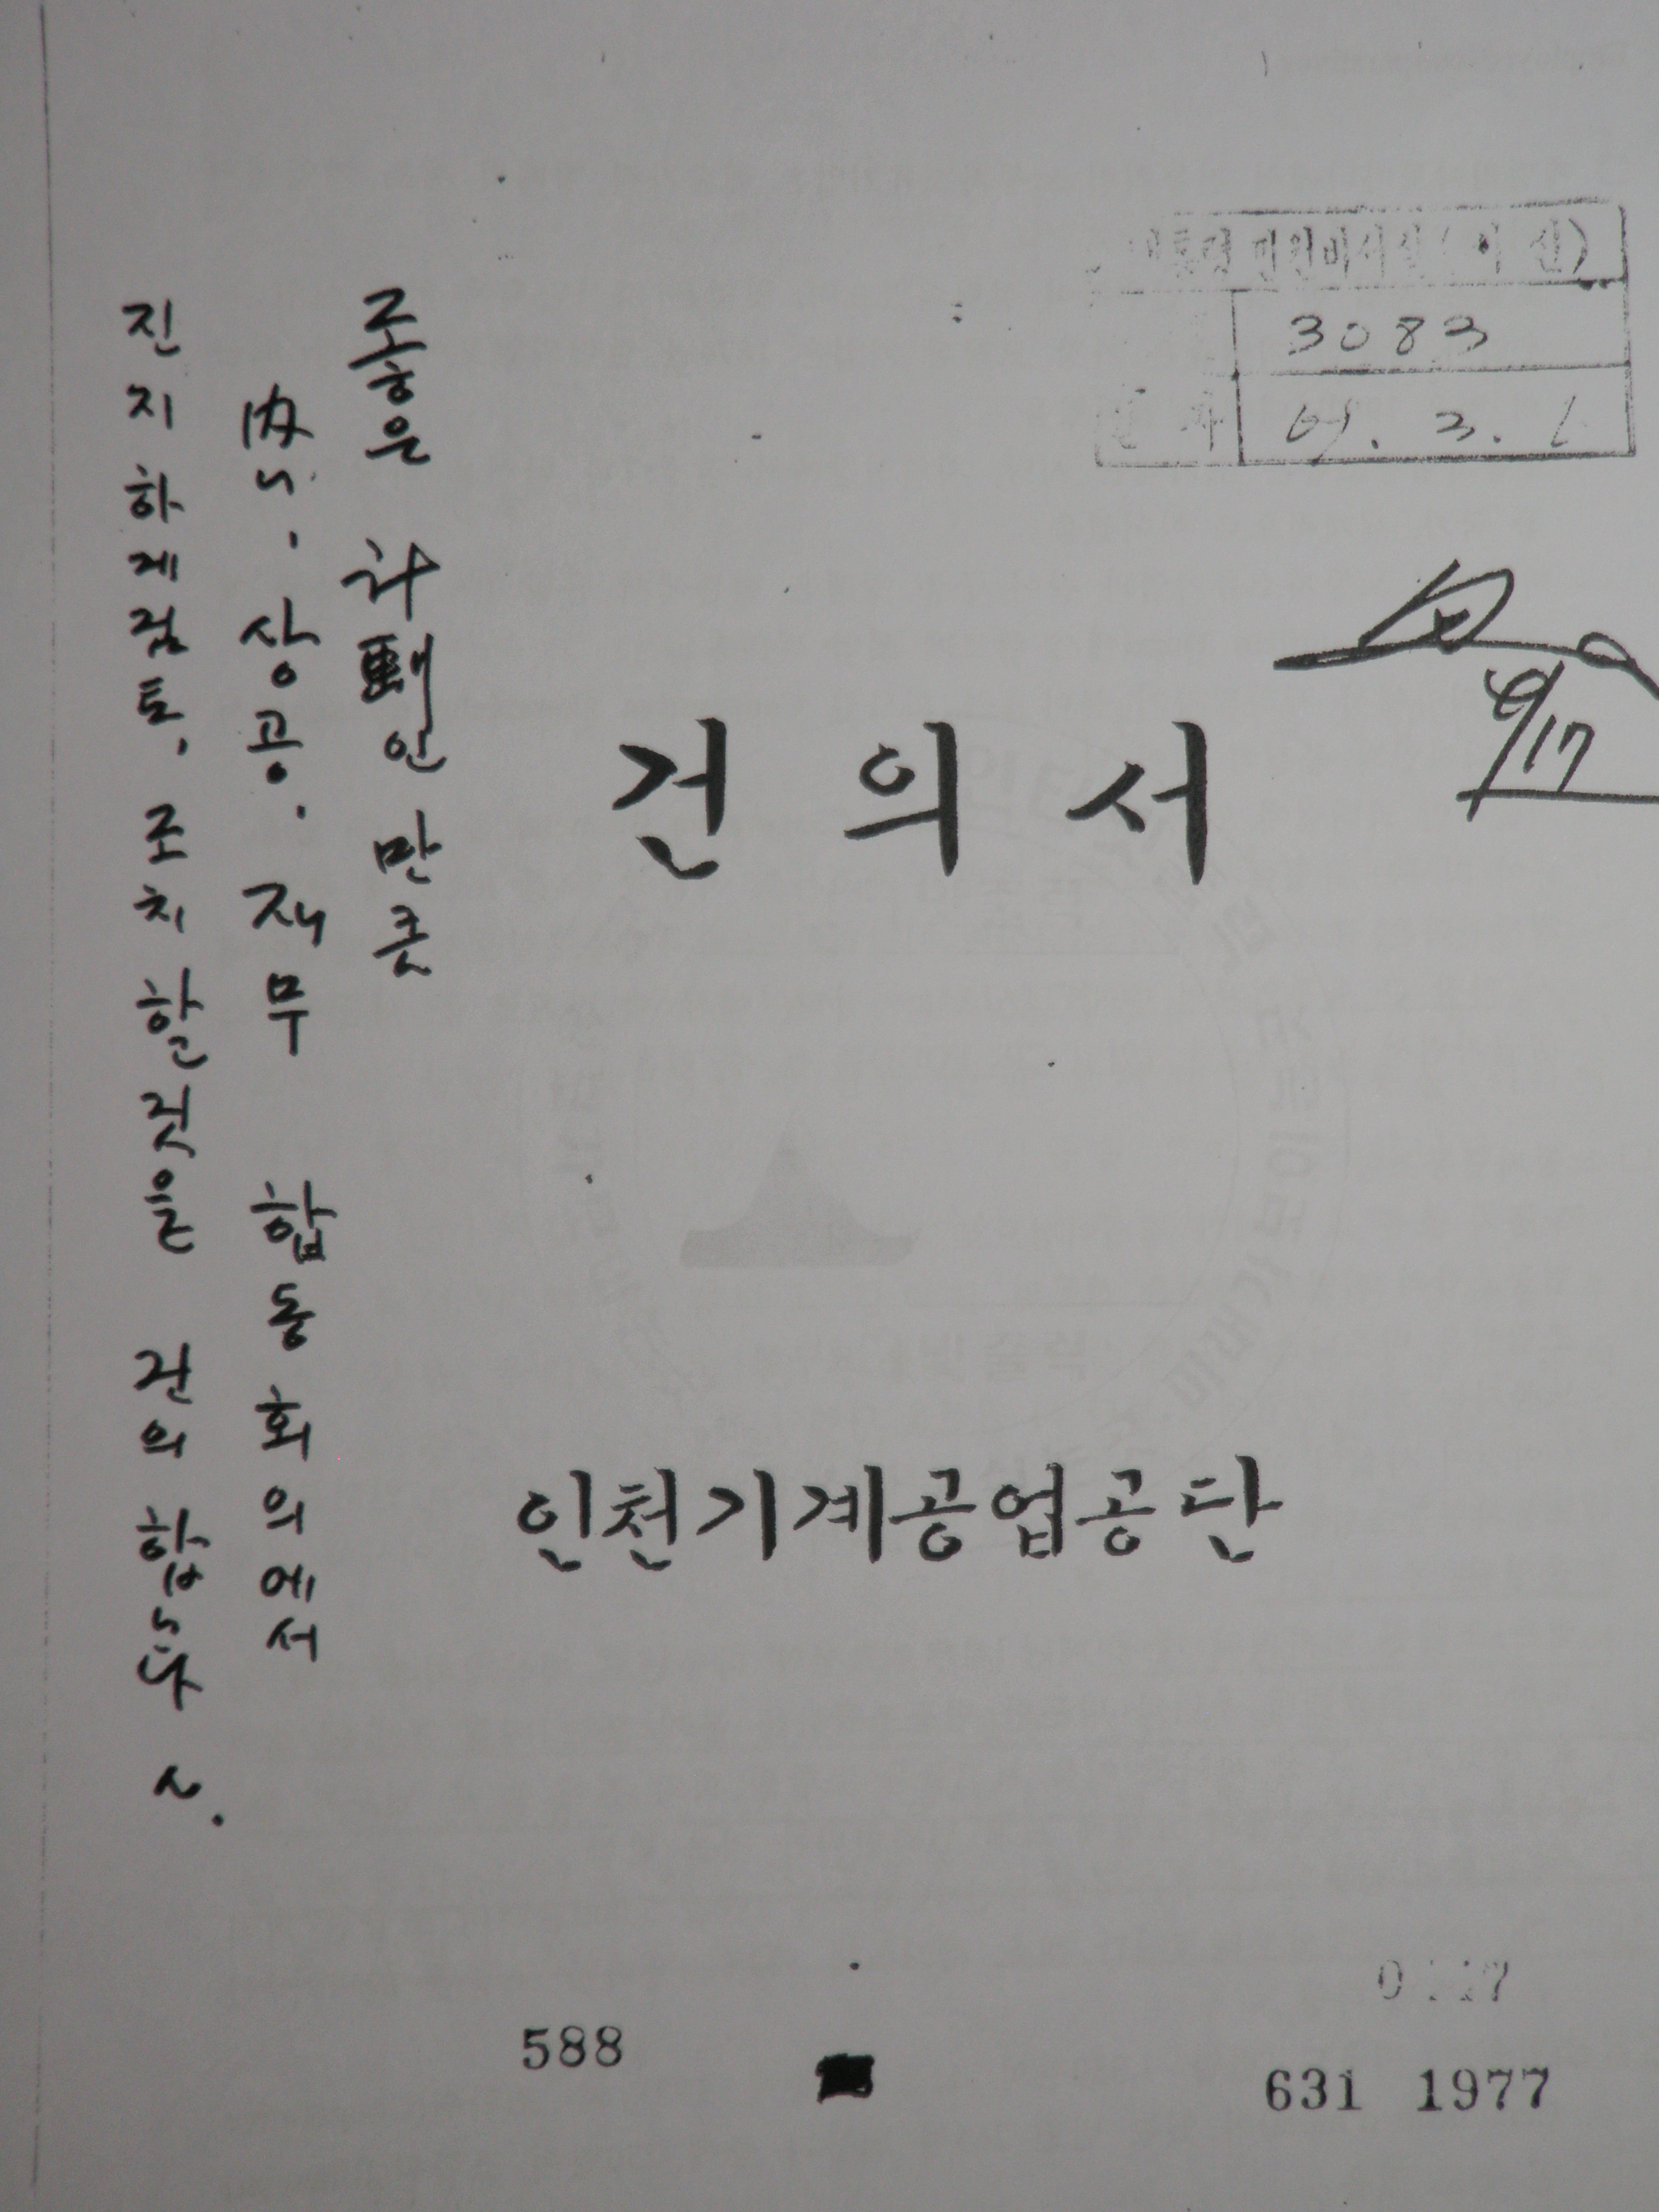 대통령 민원비서실(
3083
건의서
좋은 計劃인 만큼
內, 상공, 재무 합동회의에서
진지하게 검토, 조치 할 것을 건의 합니다
인천기계공업공단
588
631 1977